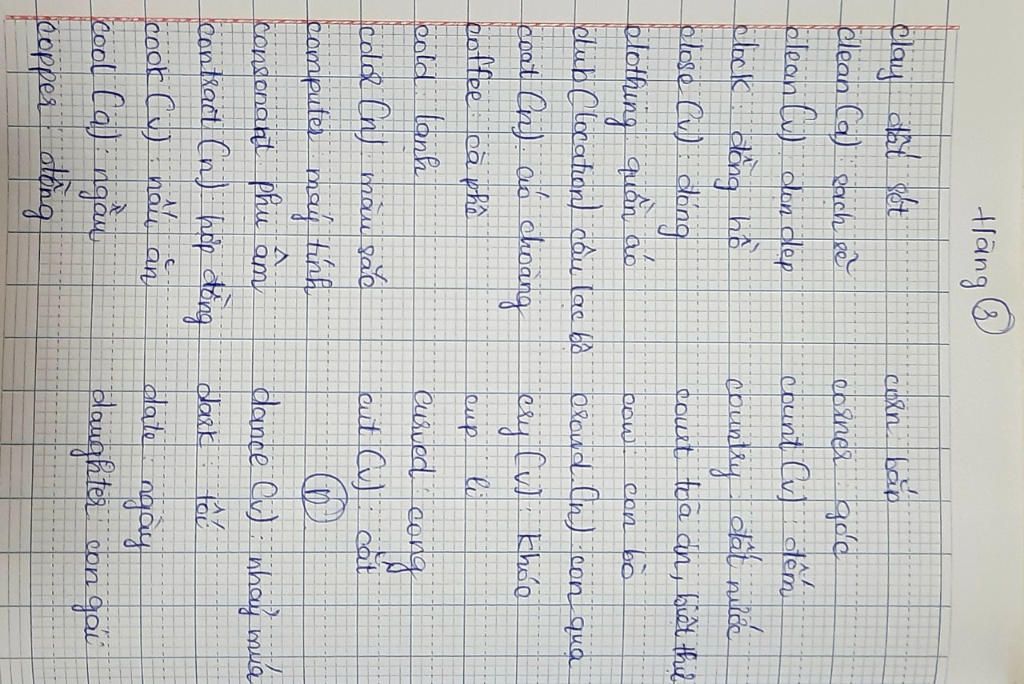 Hằng 3
clay đất sét
clean (a): sạch sẽ
clean (v): dọn dẹp
clock: đồng hồ
close (v): đóng
clothing quần áo
club (location) câu lạc bộ
coat (n): áo choàng
coffee: cà phê
cold lạnh
color (n) màu sắc
computer máy tính
consonant phụ âm
contract (n) hợp đồng
cook (v): nấu ăn
cool (a): ngầu
copper: đồng
corn bắp
corner: góc
count (v): đếm
country đất nước
court tòa án, biệt thự
cow: con bò
crowd (n) con quạ
cry (v): khóc
cup li
curved: cong
cut (v): cắt
D
dance (v): nhảy múa
dark: tối
date: ngày
daughter con gái